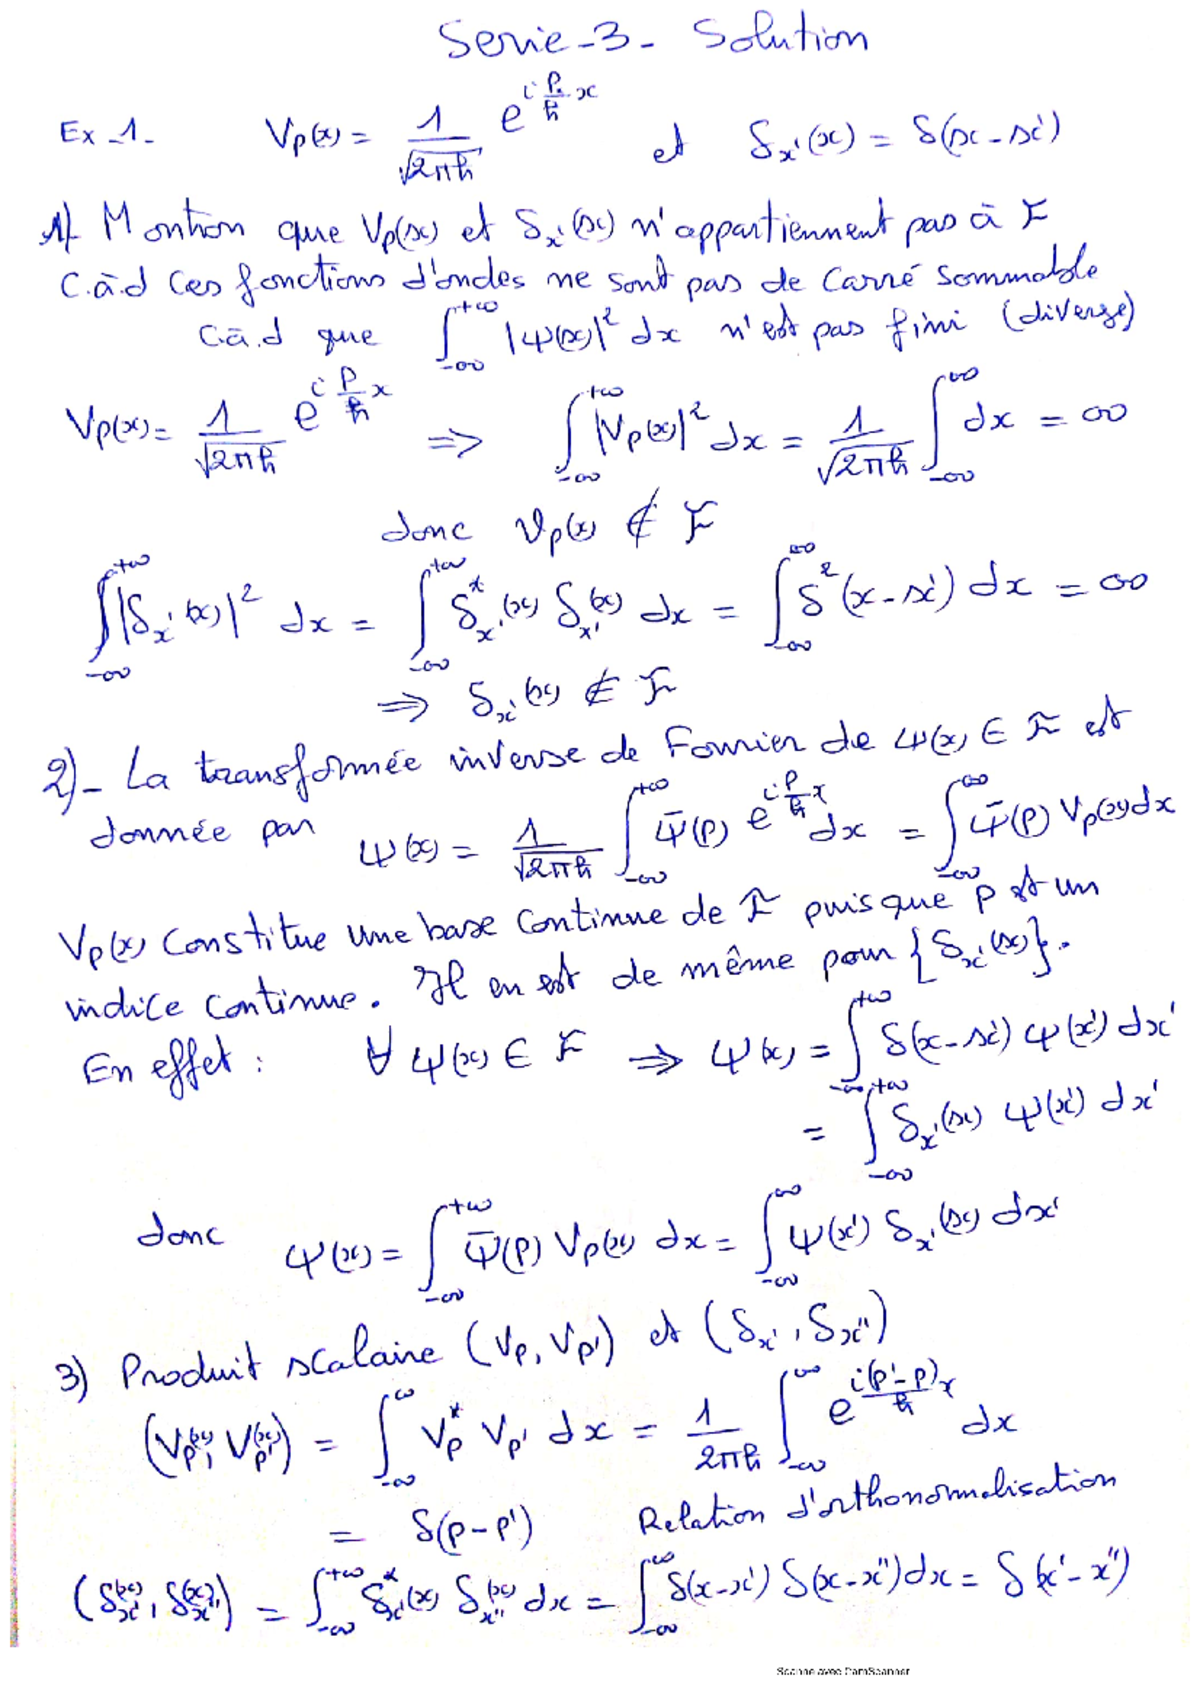 Serie-3- Solution
Ex-1- Vp(x) = 1/√2πħ e^{i p/ħ x} et δx'(x) = δ(x-x')
1) Montron que Vp(x) et δx'(x) n'appartiennent pas à F
c.à.d ces fonctions d'ondes ne sont pas de carré sommable
c.à.d que ∫_{-∞}^{+∞} |ψ(x)|² dx n'est pas fini (diverge)
Vp(x) = 1/√2πħ e^{i p/ħ x} => ∫_{-∞}^{+∞} |Vp(x)|² dx = 1/√2πħ ∫_{-∞}^{∞} dx = ∞
donc Vp(x) ∉ F
∫_{-∞}^{+∞} |δx'(x)|² dx = ∫_{-∞}^{+∞} δ*x'(x) δx'(x) dx = ∫_{-∞}^{∞} δ²(x-x') dx = ∞
=> δx'(x) ∉ F
2)- La transformée inverse de Fourier de ψ(x) ∈ F est
donnée par ψ(x) = 1/√2πħ ∫_{-∞}^{+∞} ψ̄(p) e^{i p/ħ x} dx = ∫_{-∞}^{∞} ψ̄(p) Vp(x) dx
Vp(x) constitue une base continue de F puisque p est un
indice continue. Il en est de même pour {δx'(x)}.
En effet : ∀ ψ(x) ∈ F => ψ(x) = ∫_{-∞}^{+∞} δ(x-x') ψ(x') dx'
= ∫_{-∞}^{+∞} δx'(x) ψ(x') dx'
donc ψ(x) = ∫_{-∞}^{+∞} ψ̄(p) Vp(x) dx = ∫_{-∞}^{∞} ψ(x') δx'(x) dx'
3) Produit scalaire (Vp, Vp') et (δx', δx'')
(Vp(x), Vp'(x)) = ∫_{-∞}^{∞} V*p Vp' dx = 1/2πħ ∫_{-∞}^{∞} e^{i(p'-p)/ħ x} dx
= δ(p-p') Relation d'orthonormalisation
(δx'(x), δx''(x)) = ∫_{-∞}^{+∞} δ*x'(x) δx''(x) dx = ∫_{-∞}^{∞} δ(x-x') δ(x-x'') dx = δ(x'-x'')
Scanné avec CamScanner